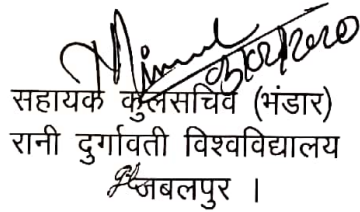 05/02/2020
सहायक कुलसचिव (भंडार)
रानी दुर्गावती विश्वविद्यालय
जबलपुर ।